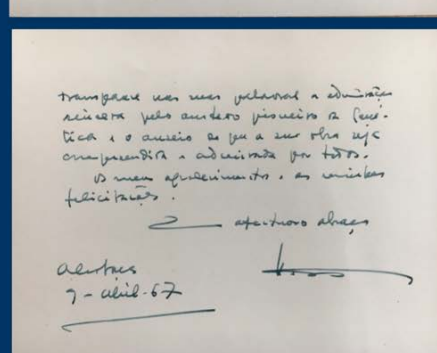 transparece nas suas palavras a admiração
sincera pelo austero pioneiro da Gené-
tica e o anseio de que a sua obra seja
compreendida e admirada por todos.
Os meus agradecimentos e as minhas
felicitações.
afectuoso abraço
9-abril-67